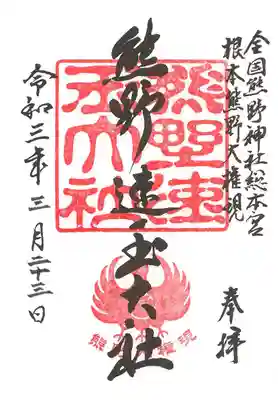 全国熊野神社総本宮
根本熊野大権現
奉拝
熊野速玉大社
令和三年三月二十三日
熊野速
玉大社